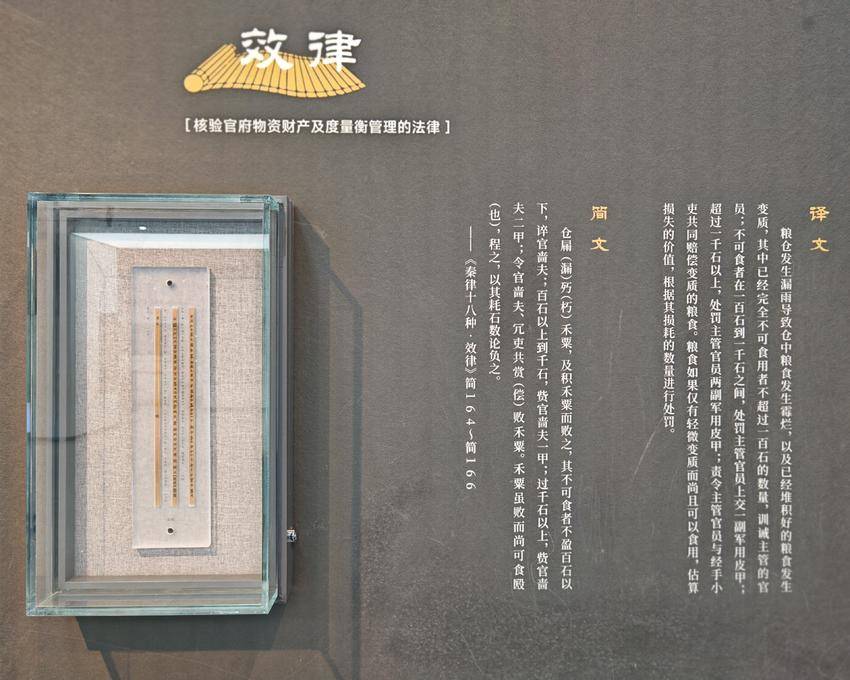 效律
[核验官府物资财产及度量衡管理的法律]
译文
粮仓发生漏雨导致仓中粮食发生霉烂，以及已经堆积好的粮食发生
变质，其中已经完全不可食用者不超过一百石的数量，训诫主管的官
员；不可食者在一百石到一千石之间，处罚主管官员上交一副军用皮甲；
超过一千石以上，处罚主管官员两副军用皮甲；责令主管官员与经手小
吏共同赔偿变质的粮食。粮食如果仅有轻微变质而尚且可以食用，估算
损失的价值，根据其损耗的数量进行处罚。
简文
仓屚（漏）㱙（朽）禾粟，及积禾粟而败之，其不可食者不盈百石以
下，谇官啬夫；百石以上到千石，赀官啬夫一甲；过千石以上，赀官啬
夫二甲；令官啬夫、冗吏共赏（偿）败禾粟。禾粟虽败而尚可食殹
（也），程之，以其耗石数论负之。
——《秦律十八种·效律》简164～简166